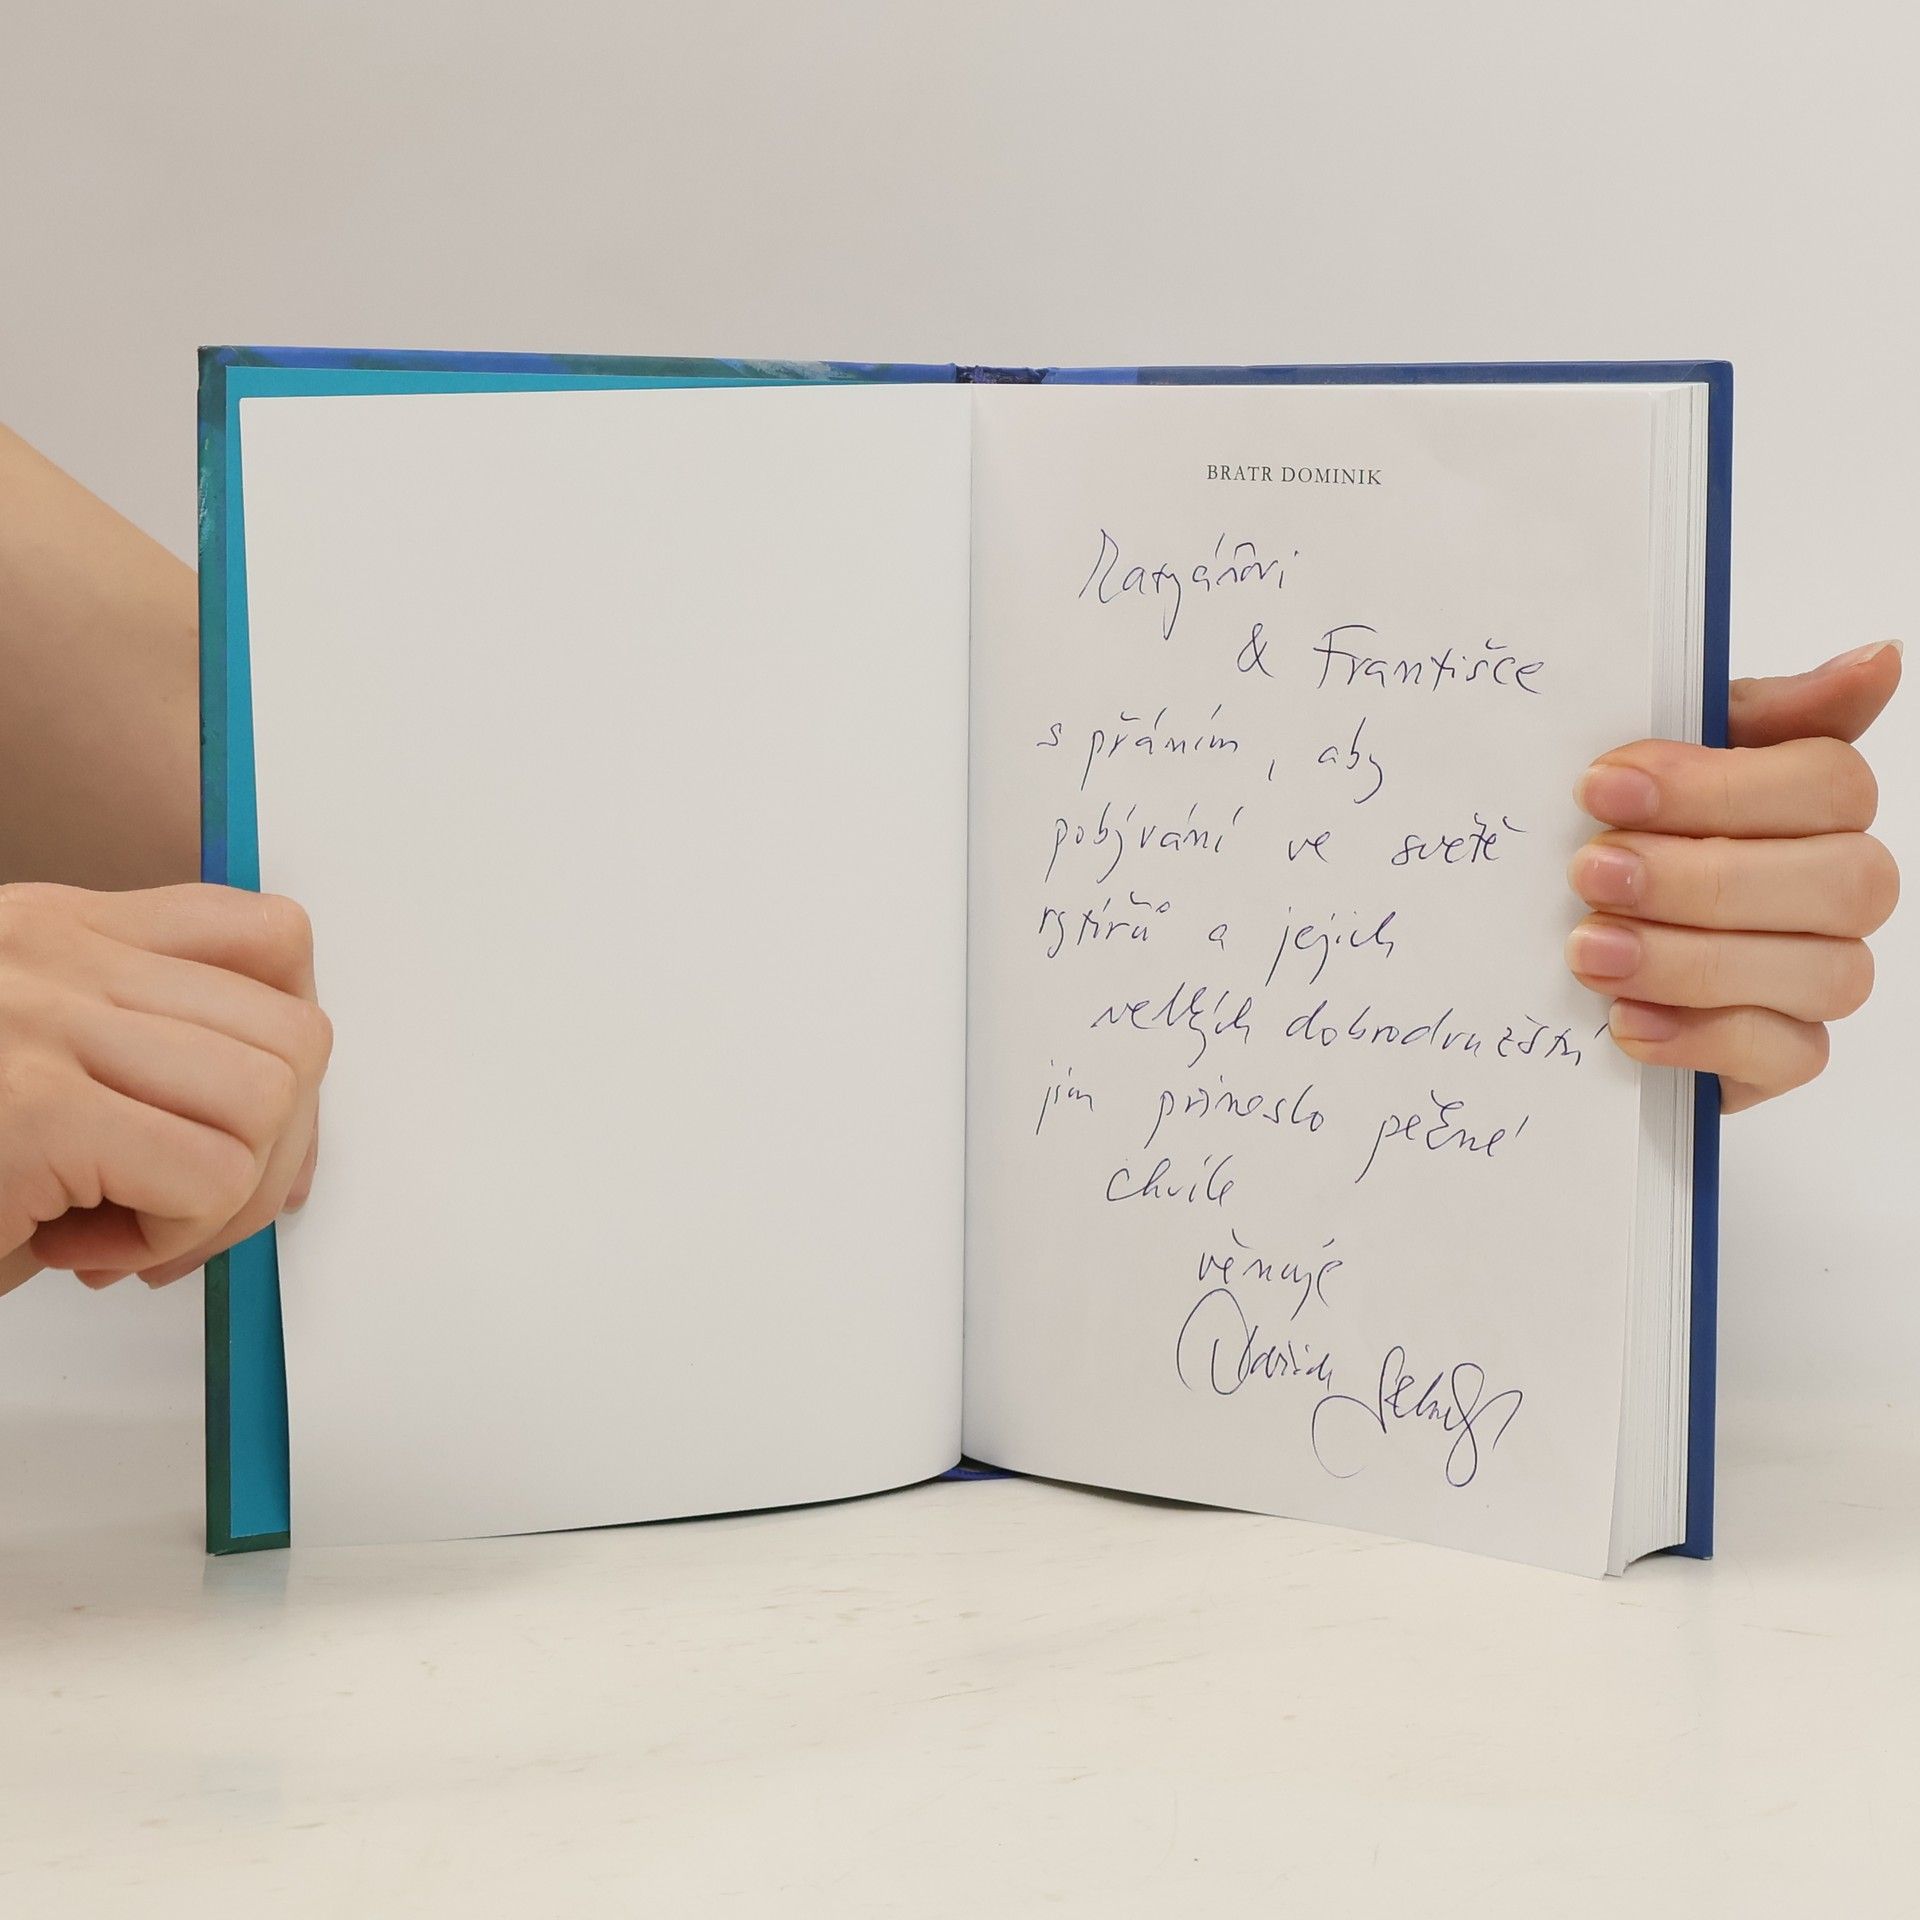 BRATR DOMINIK
Matyášovi
& Františce
s přáním, aby
pobývání ve světě
rytířů a jejich
velkých dobrodružství
jim přineslo pěkné
chvíle
věnuje